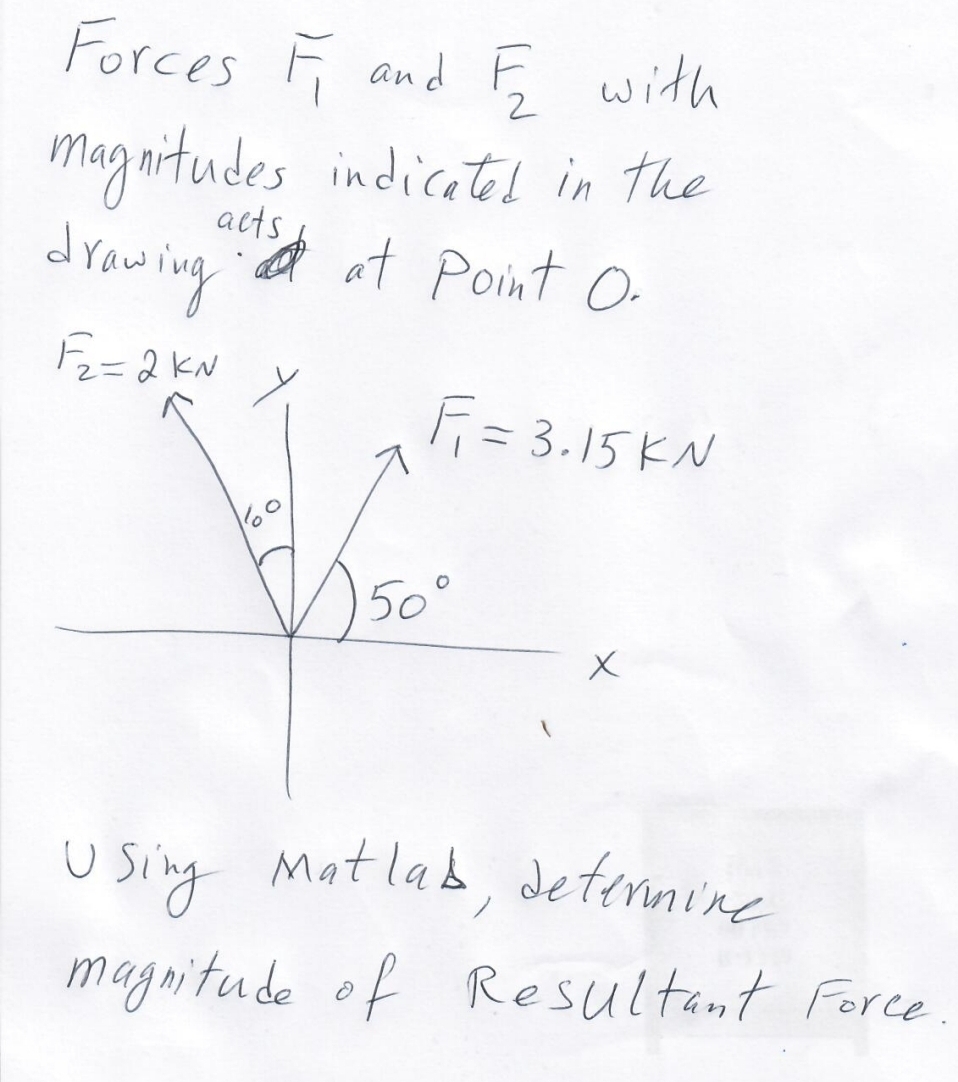 Forces F̄₁ and F̄₂ with
magnitudes indicated in the
acts
drawing at Point O.
F̄₂ = 2 KN
y
F̄₁ = 3.15 KN
10°
50°
x
Using Matlab, determine
magnitude of Resultant Force.